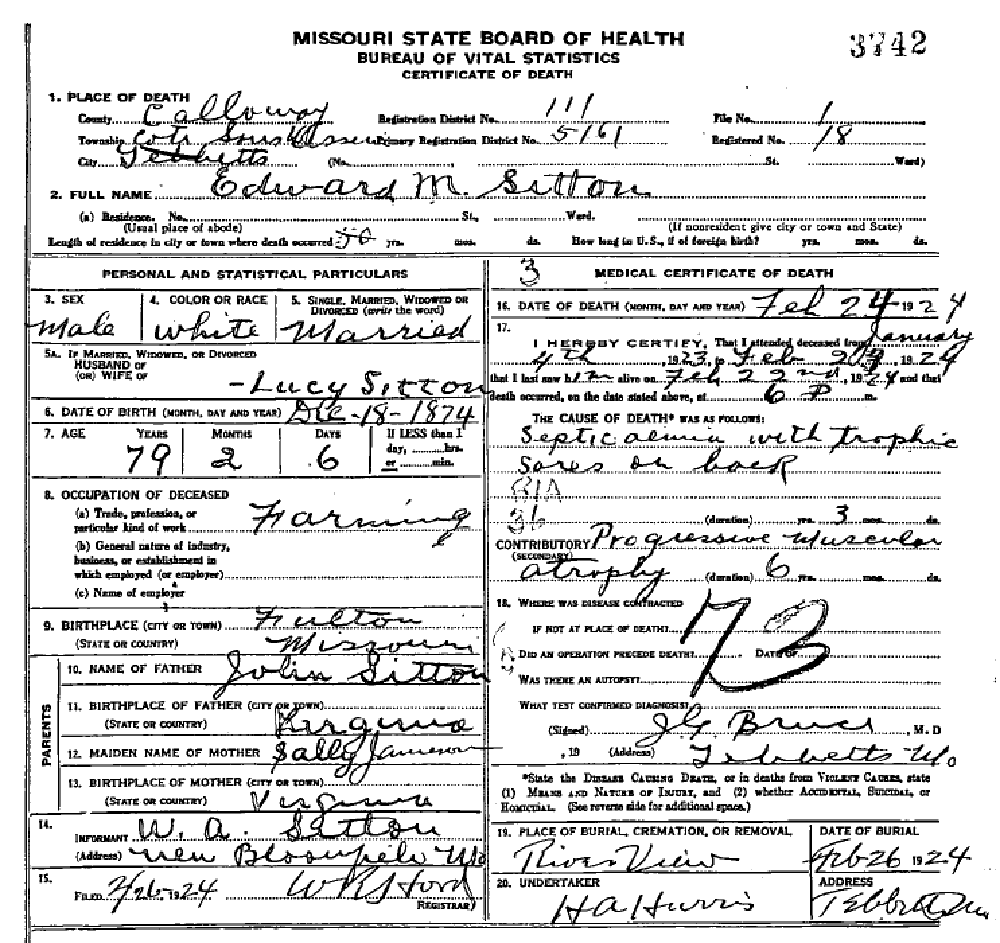 MISSOURI STATE BOARD OF HEALTH
BUREAU OF VITAL STATISTICS
CERTIFICATE OF DEATH
3742
1. PLACE OF DEATH
County Calloway Registration District No. 111 File No. 1
Township Primary Registration District No. 5161 Registered No. 18
City Tebbetts (No. St. Ward)
2. FULL NAME Edward M. Sitton
(a) Residence. No. St., Ward.
(Usual place of abode) (If nonresident give city or town and State)
Length of residence in city or town where death occurred yrs. mos. ds. How long in U.S., if of foreign birth? yrs. mos. ds.
PERSONAL AND STATISTICAL PARTICULARS
3. SEX
Male
4. COLOR OR RACE
White
5. SINGLE, MARRIED, WIDOWED OR
DIVORCED (write the word)
Married
5A. IF MARRIED, WIDOWED, OR DIVORCED
HUSBAND OF
(OR) WIFE OF
- Lucy Sitton
6. DATE OF BIRTH (MONTH, DAY AND YEAR) Dec-18-1874
7. AGE YEARS MONTHS DAYS If LESS than 1
day, hrs.
or min.
79 2 6
8. OCCUPATION OF DECEASED
(a) Trade, profession, or
particular kind of work Farming
(b) General nature of industry,
business, or establishment in
which employed (or employer)
(c) Name of employer
9. BIRTHPLACE (CITY OR TOWN) Fulton
(STATE OR COUNTRY) Missouri
PARENTS
10. NAME OF FATHER John Sitton
11. BIRTHPLACE OF FATHER (CITY OR TOWN)
(STATE OR COUNTRY) Virginia
12. MAIDEN NAME OF MOTHER Sally Jameson
13. BIRTHPLACE OF MOTHER (CITY OR TOWN)
(STATE OR COUNTRY) Virginia
14.
INFORMANT W. A. Sitton
(Address) New Bloomfield Mo
15.
FILED 2/26 1924
REGISTRAR
3 MEDICAL CERTIFICATE OF DEATH
16. DATE OF DEATH (MONTH, DAY AND YEAR) Feb 24 1924
17.
I HEREBY CERTIFY, That I attended deceased from January
4th, 1923, to Feb 1924
that I last saw him alive on Feb 22nd, 1924 and that
death occurred, on the date stated above, at 6 P m.
THE CAUSE OF DEATH* WAS AS FOLLOWS:
Septicaemia with trophic
sores on back
(duration) yrs. 3 mos. ds.
CONTRIBUTORY Progressive Muscular
(SECONDARY)
atrophy (duration) 6 yrs. mos. ds.
18. WHERE WAS DISEASE CONTRACTED
IF NOT AT PLACE OF DEATH?
73
DID AN OPERATION PRECEDE DEATH? DATE OF
WAS THERE AN AUTOPSY?
WHAT TEST CONFIRMED DIAGNOSIS?
(Signed) J G Bruce, M.D
, 19 (Address) Tebbetts Mo
*State the DISEASE CAUSING DEATH, or in deaths from VIOLENT CAUSES, state
(1) MEANS AND NATURE OF INJURY, and (2) whether ACCIDENTAL, SUICIDAL, or
HOMICIDAL. (See reverse side for additional space.)
19. PLACE OF BURIAL, CREMATION, OR REMOVAL
River View
DATE OF BURIAL
Feb 26 1924
20. UNDERTAKER
H A Harris
ADDRESS